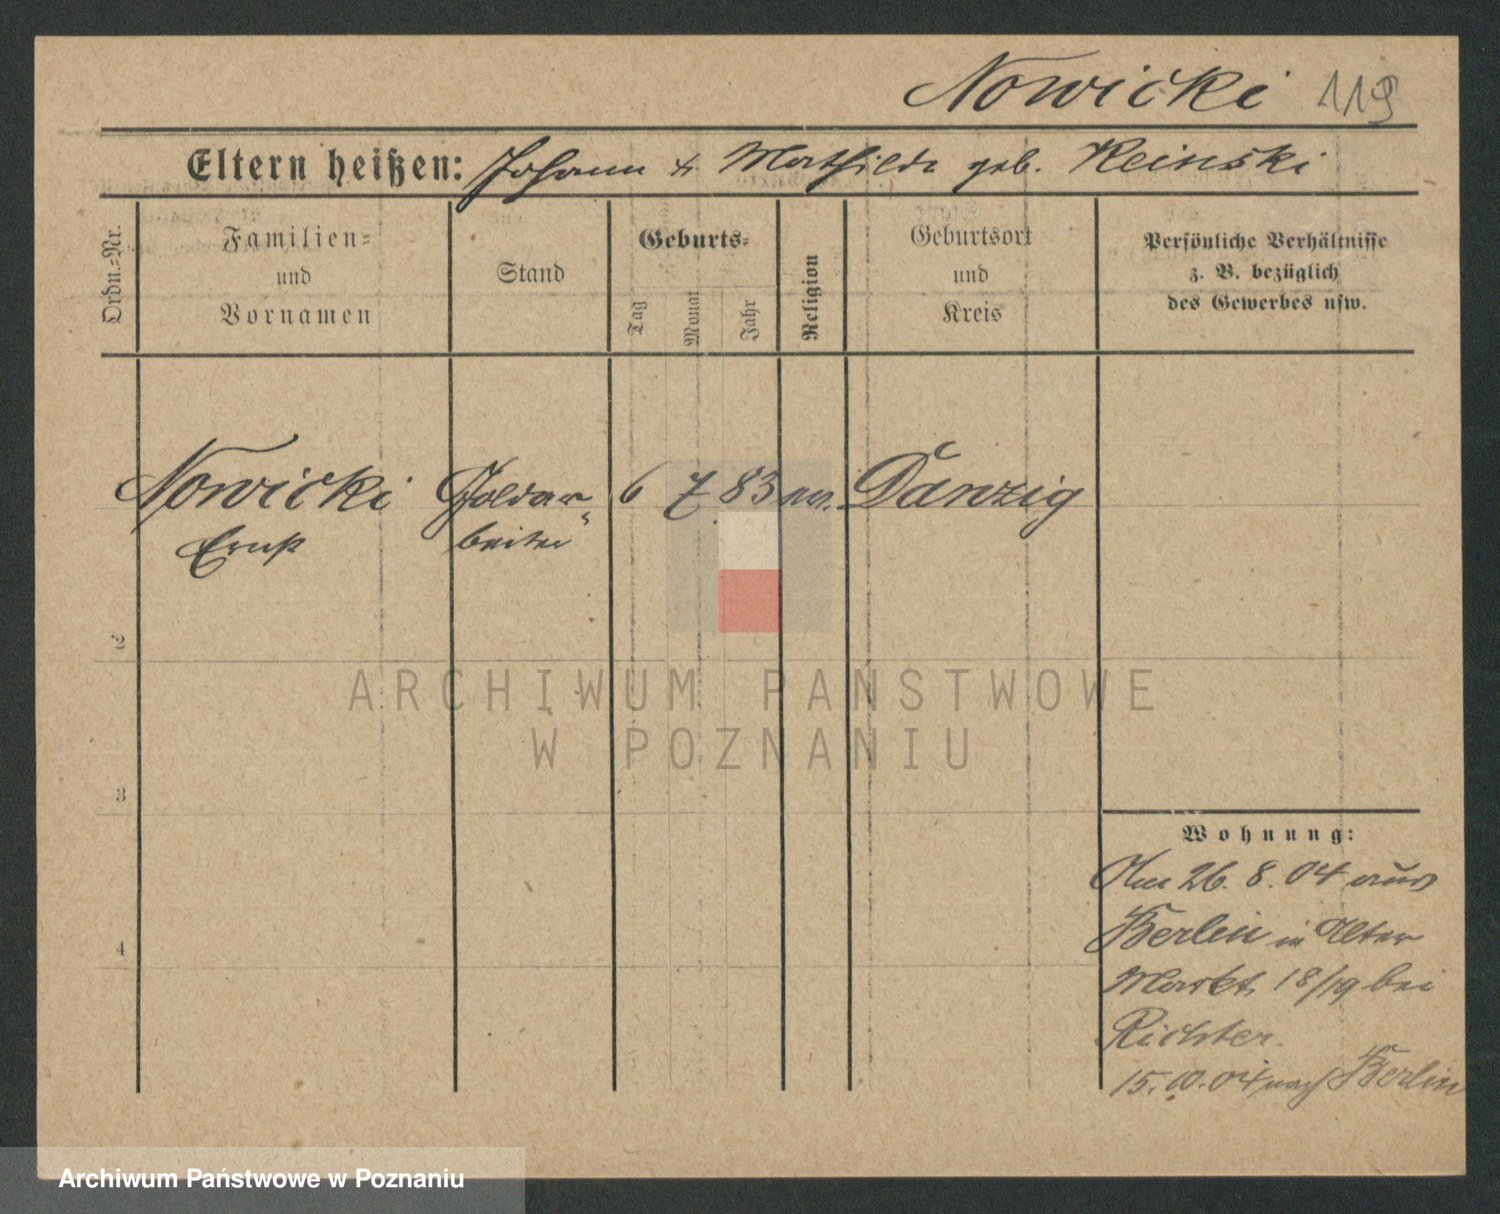 Nowicki 119
Eltern heißen: Johann & Mathilde geb. Reinski
Ordn.-Nr.
Familien-
und
Vornamen
Stand
Geburts-
Tag
Monat
Jahr
Religion
Geburtsort
und
Kreis
Persönliche Verhältnisse
z. B. bezüglich
des Gewerbes usw.
Nowicki Goldar- 6 7 83 Danzig
Ernst beiter
2
3
4
Wohnung:
Am 26. 8. 04 aus
Berlin in Alter
Markt 18/19 bei
Richter.
15.10.04 nach Berlin
ARCHIWUM PAŃSTWOWE
W POZNANIU
Archiwum Państwowe w Poznaniu